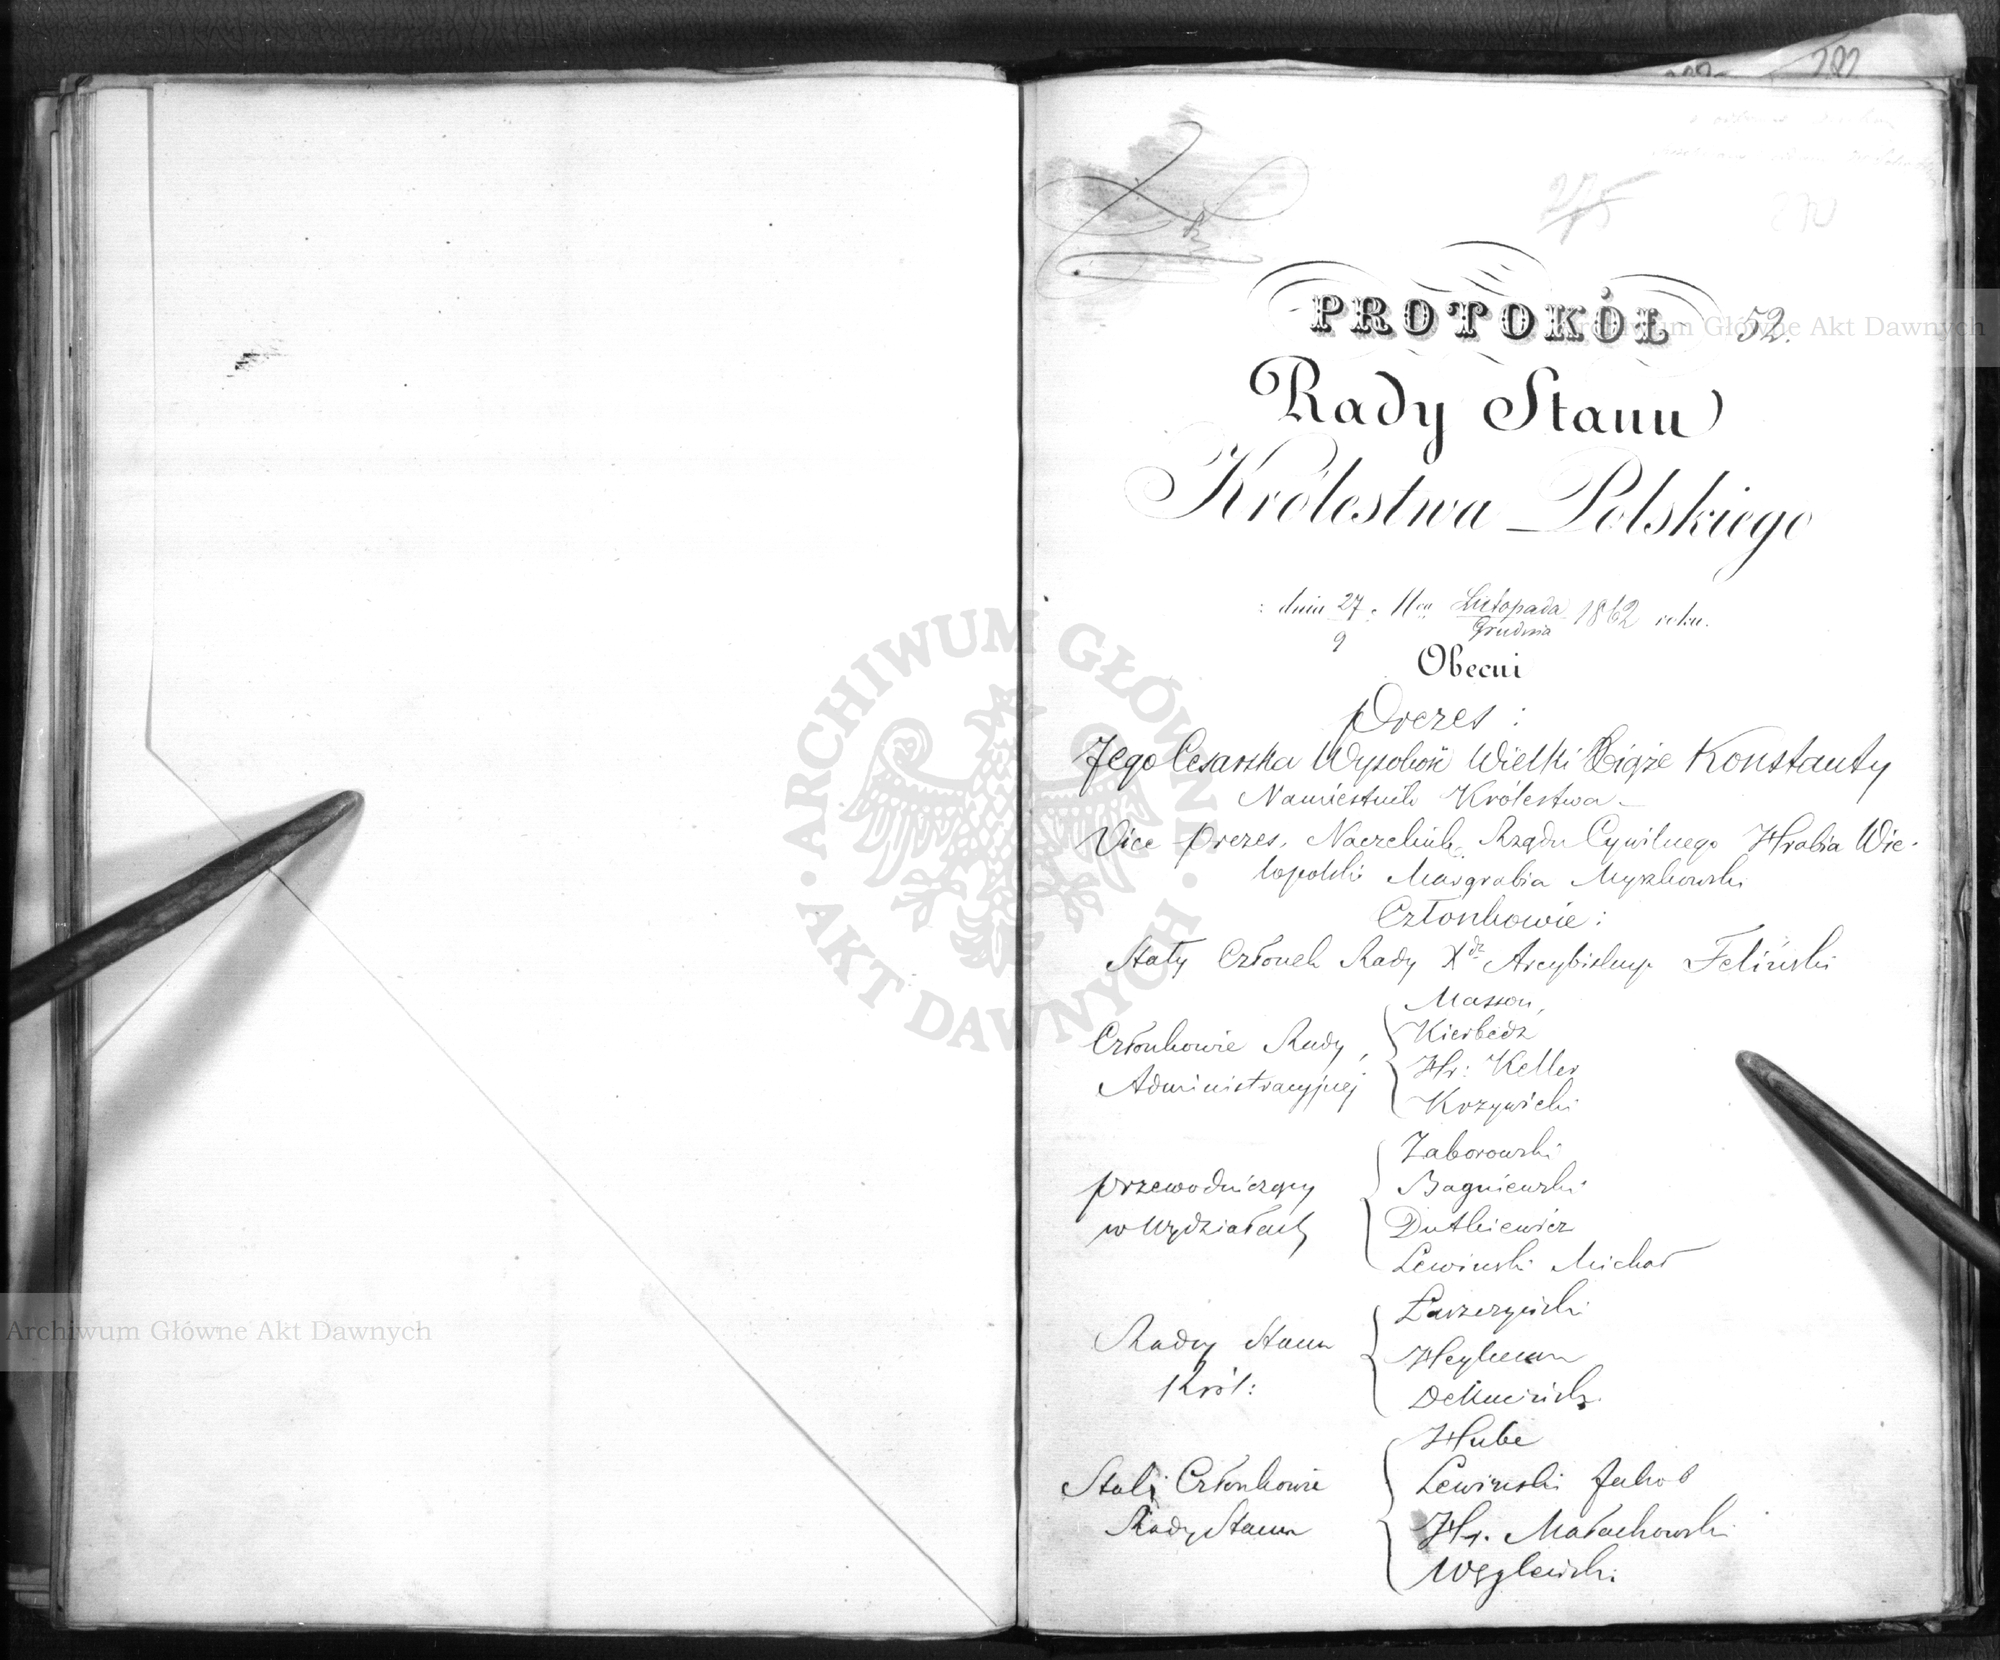 222
275
270
PROTOKÓŁ 52.
Rady Stanu
Królestwa Polskiego
dnia 27/9 Listopada/Grudnia 1862 roku.
Obecni
Prezes:
Jego Cesarska Wysokość Wielki Xiąże Konstanty
Namiestnik Królestwa
Vice-Prezes, Naczelnik Rządu Cywilnego Hrabia Wie-
lopolski Margrabia Myszkowski
Członkowie:
Stały Członek Rady Xdz Arcybiskup Feliński
Członkowie Rady Administracyjnej
Masson,
Kierbedz
Hr: Keller
Krzywicki
Przewodniczący w Wydziałach
Zaborowski
Bagniewski
Dutkiewicz
Lewinski Michał
Radcy Stanu Król:
Łaszczyński
Heylman
Stali Członkowie Rady Stanu
Hube
Lewinski Jakob
Hr. Małachowski
Węgleński
Archiwum Główne Akt Dawnych
Archiwum Główne Akt Dawnych
ARCHIWUM GŁÓWNE AKT DAWNYCH